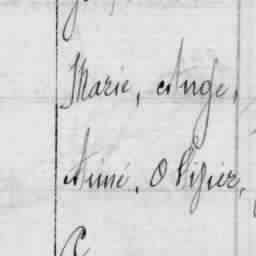 Marie, Ange,
Aimé, Olivier,